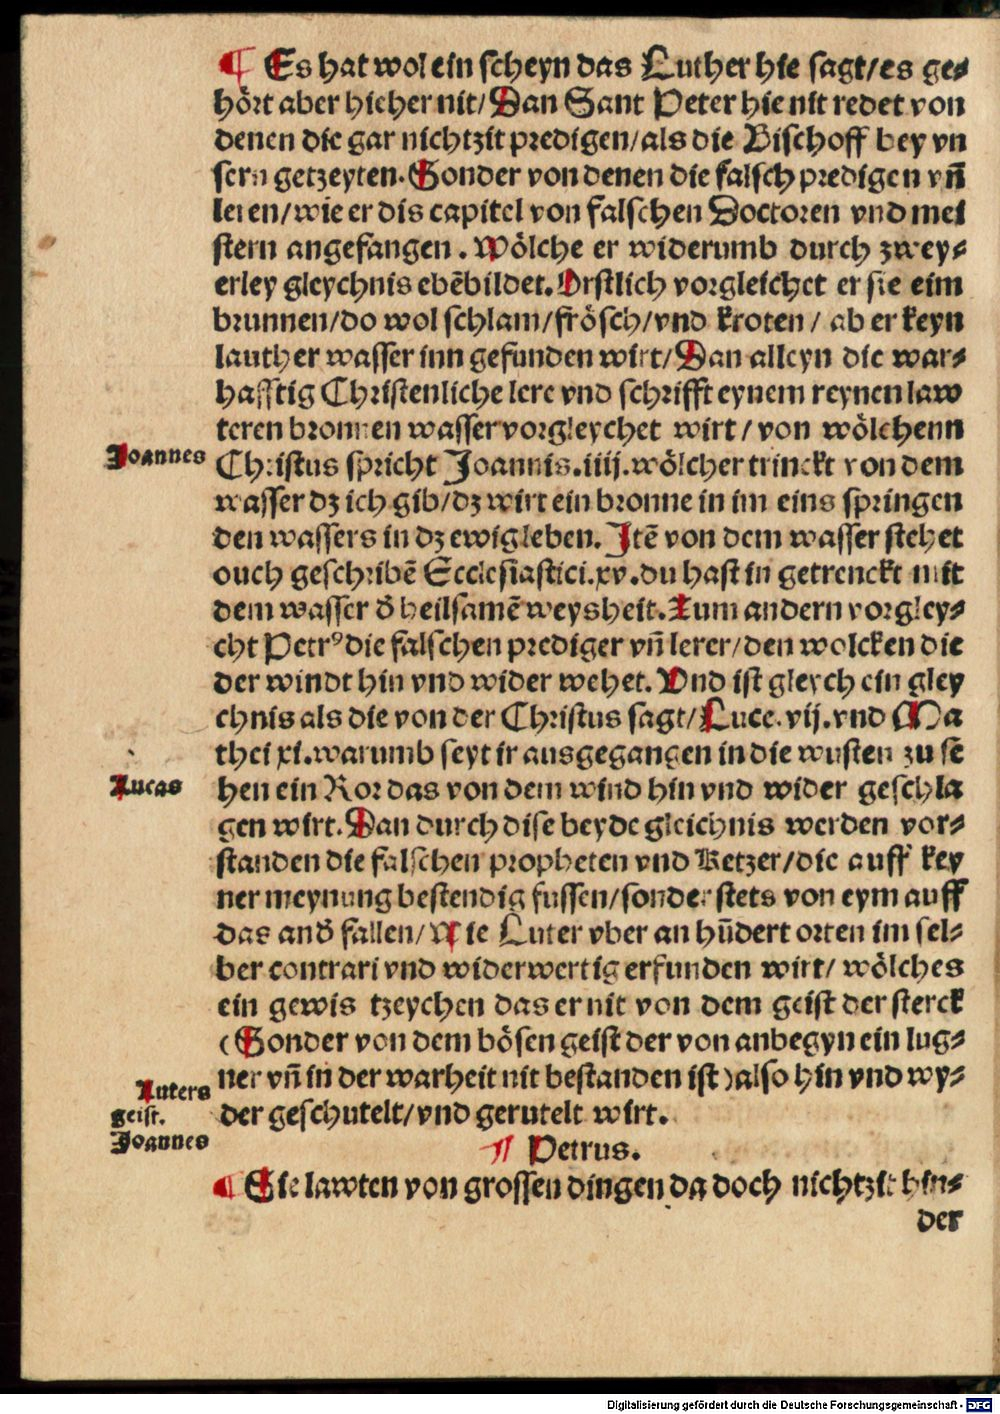 ¶ Es hat wol ein scheyn das Luther hie sagt/es ge-
hört aber hieher nit/Dan Sant Peter hie nit redet von
denen die gar nichtzit predigen/als die Bischoff bey vn
sern getzeyten. Sonder von denen die falsch predigen vñ
leren/wie er dis capitel von falschen Doctoren vnd mei
stern angefangen. Wölche er widerumb durch zwey-
erley gleychnis ebēbildet. Erstlich vorgleichet er sie eim
brunnen/do wol schlam/frösch/vnd kroten / ab er keyn
lauther wasser inn gefunden wirt/Dan alleyn die war-
hafftig Christenliche lere vnd schrifft eynem reynen law
teren bronnen wasser vorgleychet wirt / von wölchenn
Joannes
Christus spricht Joannis.iiij.wölcher trinckt von dem
wasser dz ich gib/dz wirt ein bronne in im eins springen
den wassers in dz ewig leben. Itē von dem wasser stehet
ouch geschribē Ecclesiastici.xv.du hast in getrenckt mit
dem wasser d̕ heilsamē weysheit. Zum andern vorgley-
cht Petrꝰ die falschen prediger vñ lerer/den wolcken die
der windt hin vnd wider wehet. Vnd ist gleych ein gley
chnis als die von der Christus sagt/Luce.vij.vnd Ma
thei xi.warumb seyt ir ausgegangen in die wusten zu sē
Lucas
hen ein Ror das von dem wind hin vnd wider geschla
gen wirt. Dan durch dise beyde gleichnis werden vor-
standen die falschen propheten vnd Ketzer/die auff key
ner meynung bestendig fussen/sonder stets von eym auff
das and̕ fallen/Wie Luter vber an hūdert orten im sel-
ber contrari vnd widerwertig erfunden wirt/ wölches
ein gewis tzeychen das er nit von dem geist der sterck
(Sonder von dem bösen geist der von anbegyn ein lug-
ner vñ in der warheit nit bestanden ist) also hin vnd wy-
Luters
geist.
der geschutelt/vnd gerutelt wirt.
Joannes
¶ Petrus.
¶ Sie lawten von grossen dingen da doch nichtzit hin-
der
Digitalisierung gefördert durch die Deutsche Forschungsgemeinschaft - DFG